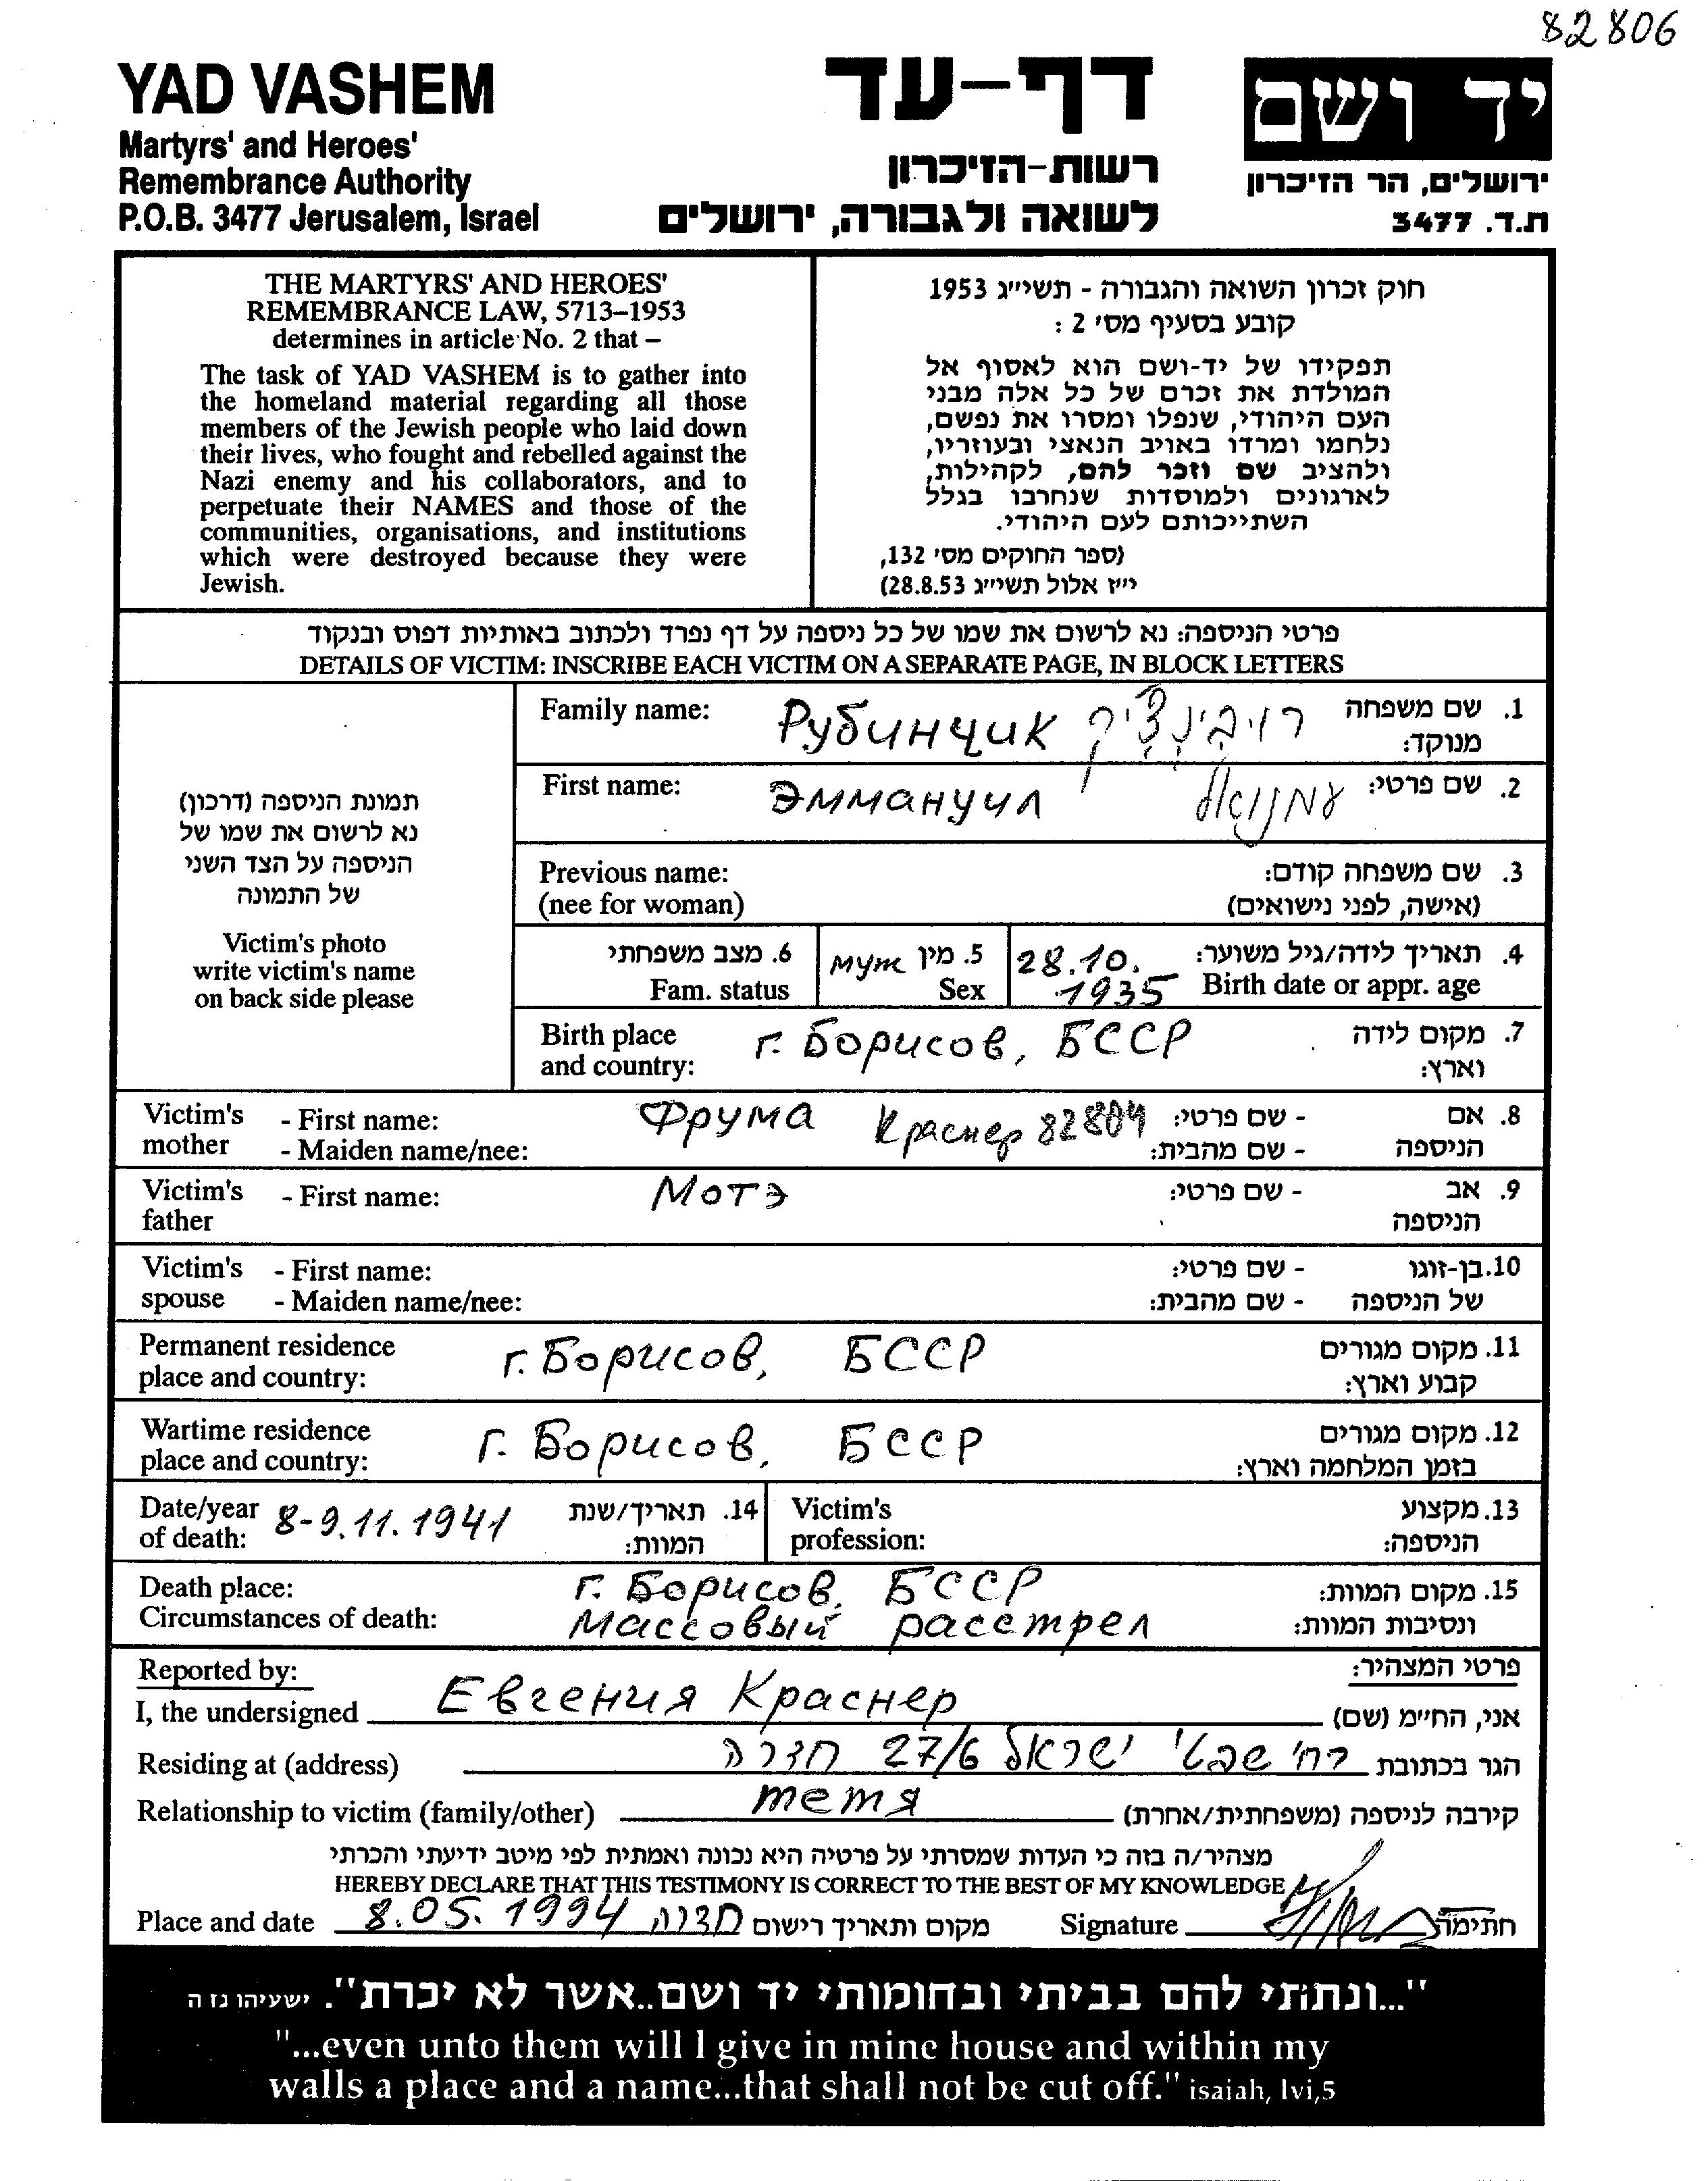 82806
YAD VASHEM
Martyrs' and Heroes'
Remembrance Authority
P.O.B. 3477 Jerusalem, Israel
דף-עד
רשות-הזיכרון
לשואה ולגבורה, ירושלים
יד ושם
ירושלים, הר הזיכרון
ת.ד. 3477
THE MARTYRS' AND HEROES'
REMEMBRANCE LAW, 5713–1953
determines in article No. 2 that –
The task of YAD VASHEM is to gather into
the homeland material regarding all those
members of the Jewish people who laid down
their lives, who fought and rebelled against the
Nazi enemy and his collaborators, and to
perpetuate their NAMES and those of the
communities, organisations, and institutions
which were destroyed because they were
Jewish.
חוק זכרון השואה והגבורה - תשי״ג 1953
קובע בסעיף מס׳ 2 :
תפקידו של יד-ושם הוא לאסוף אל
המולדת את זכרם של כל אלה מבני
העם היהודי, שנפלו ומסרו את נפשם,
נלחמו ומרדו באויב הנאצי ובעוזריו,
ולהציב שם וזכר להם, לקהילות,
לארגונים ולמוסדות שנחרבו בגלל
השתייכותם לעם היהודי.
(ספר החוקים מס׳ 132,
י״ז אלול תשי״ג 28.8.53)
פרטי הניספה: נא לרשום את שמו של כל ניספה על דף נפרד ולכתוב באותיות דפוס ובנקוד
DETAILS OF VICTIM: INSCRIBE EACH VICTIM ON A SEPARATE PAGE, IN BLOCK LETTERS
תמונת הניספה (דרכון)
נא לרשום את שמו של
הניספה על הצד השני
של התמונה
Victim's photo
write victim's name
on back side please
Family name: Рубинчик רובינצ'יק 1. שם משפחה
מנוקד:
First name: Эммануил עמנואל 2. שם פרטי:
Previous name: 3. שם משפחה קודם:
(nee for woman) (אישה, לפני נישואים)
6. מצב משפחתי муж 5. מין 28.10. 4. תאריך לידה/גיל משוער:
Fam. status Sex 1935 Birth date or appr. age
Birth place г. Борисов, БССР 7. מקום לידה
and country: וארץ:
Victim's - First name: Фрума Краснер 82804 - שם פרטי: 8. אם
mother - Maiden name/nee: - שם מהבית: הניספה
Victim's - First name: Мотэ - שם פרטי: 9. אב
father הניספה
Victim's - First name: - שם פרטי: 10. בן-זוגו
spouse - Maiden name/nee: - שם מהבית: של הניספה
Permanent residence г. Борисов, БССР 11. מקום מגורים
place and country: קבוע וארץ:
Wartime residence г. Борисов, БССР 12. מקום מגורים
place and country: בזמן המלחמה וארץ:
Date/year 8-9.11.1941 14. תאריך/שנת Victim's 13. מקצוע
of death: המוות: profession: הניספה:
Death place: г. Борисов, БССР 15. מקום המוות:
Circumstances of death: Массовый расстрел ונסיבות המוות:
Reported by: פרטי המצהיר:
I, the undersigned Евгения Краснер אני, החי״מ (שם)
Residing at (address) רח' שבטי ישראל 27/6 חדרה הגר בכתובת
Relationship to victim (family/other) тетя קירבה לניספה (משפחתית/אחרת)
מצהיר/ה בזה כי העדות שמסרתי על פרטיה היא נכונה ואמתית לפי מיטב ידיעתי והכרתי
HEREBY DECLARE THAT THIS TESTIMONY IS CORRECT TO THE BEST OF MY KNOWLEDGE
Place and date 8.05.1994 חדרה מקום ותאריך רישום Signature חתימה
"...ונתתי להם בביתי ובחומותי יד ושם..אשר לא יכרת". ישעיהו נו ה
"...even unto them will I give in mine house and within my
walls a place and a name...that shall not be cut off." isaiah, lvi,5